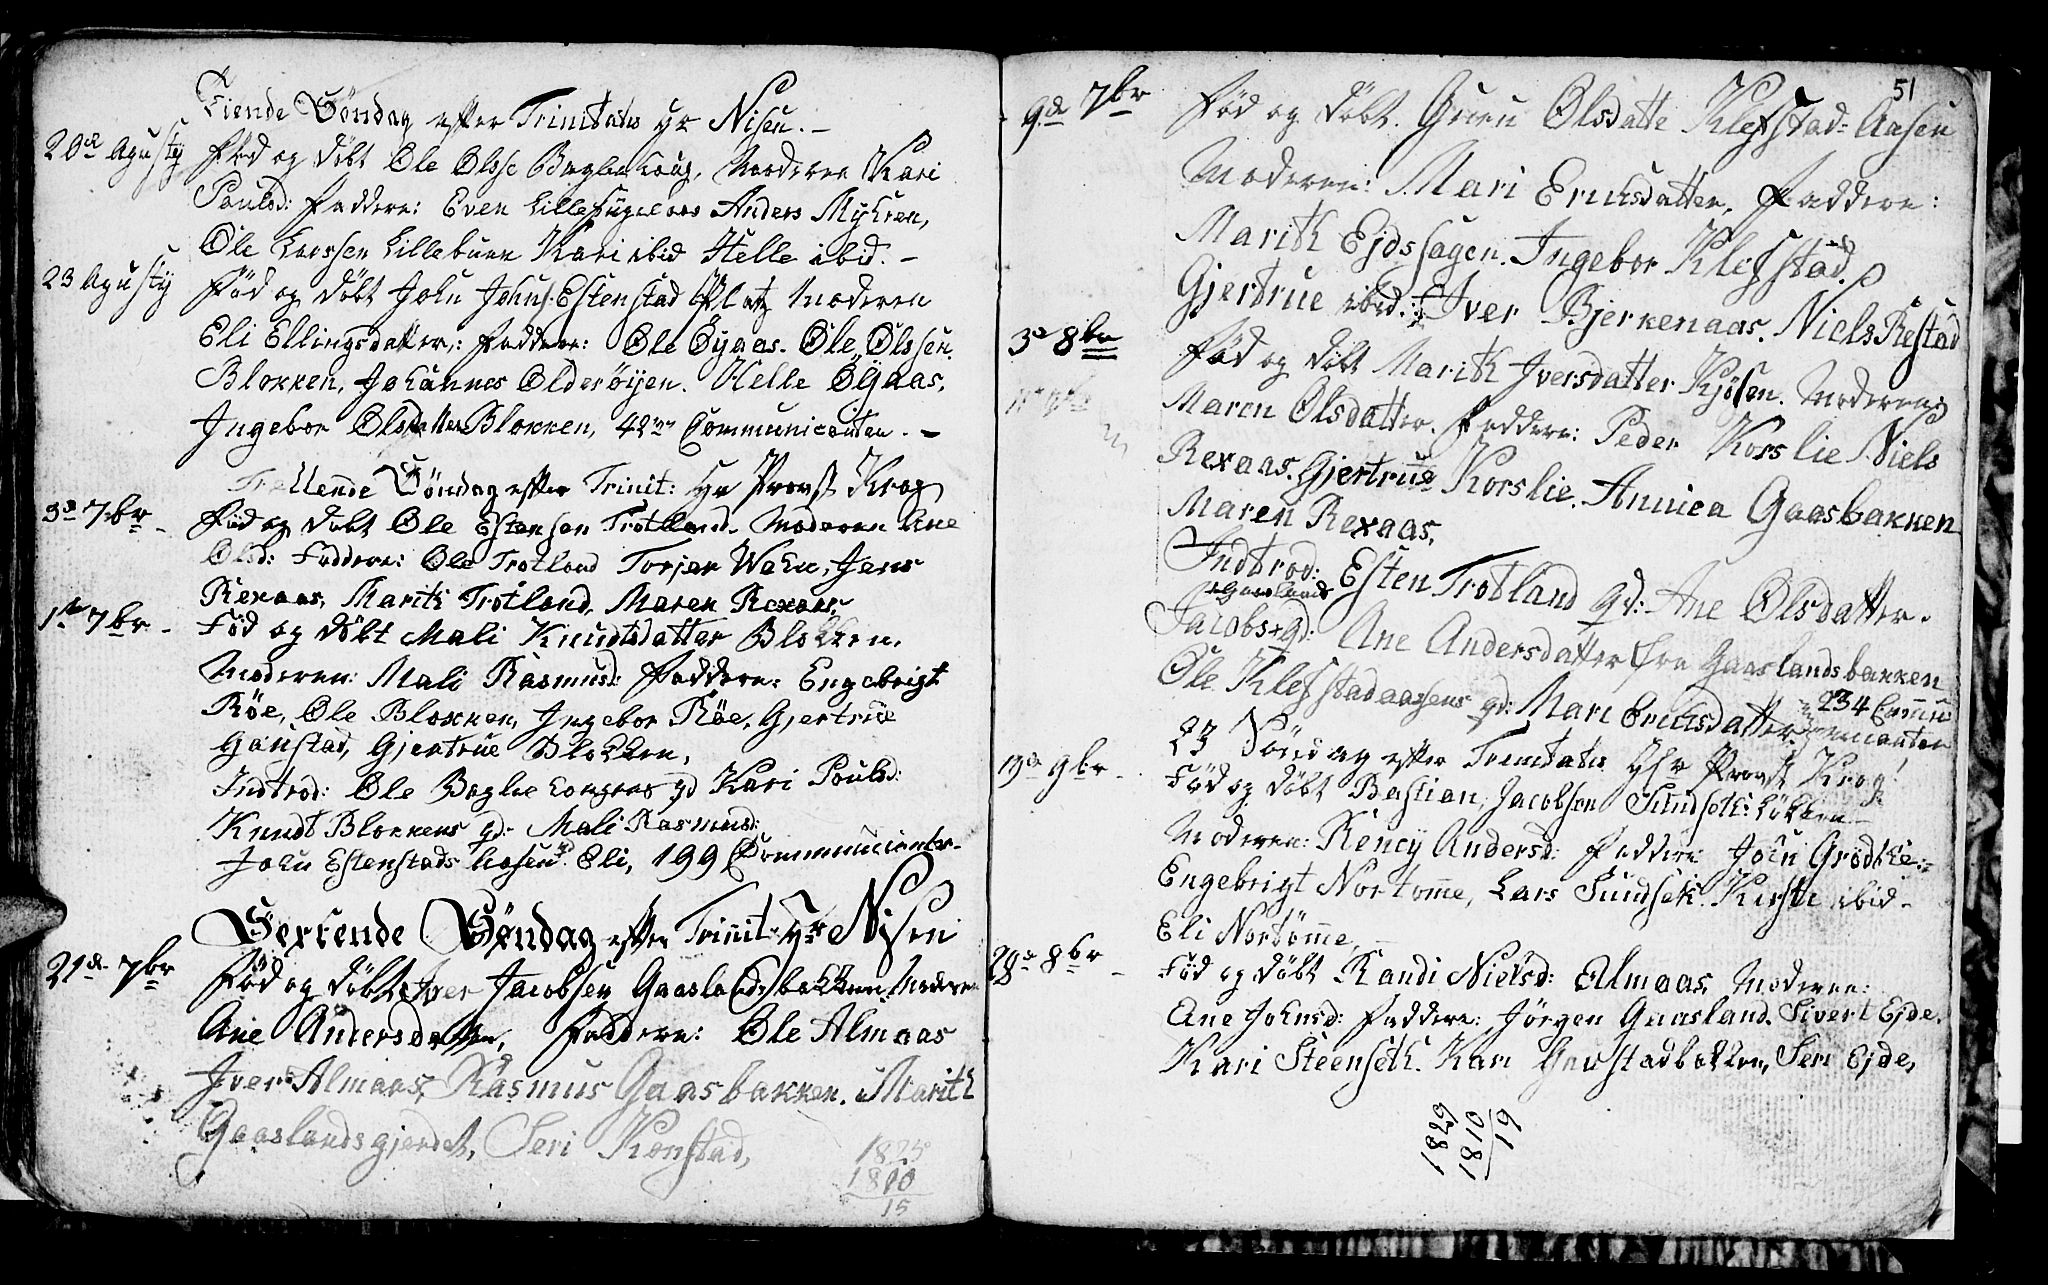 Tiende Söndag efter Trinitatis Hr Nisen. –
20de Agusty Fød og døbt Ole Olsse Moderen Kari
Poulsd: Faddere: Even Anders Myhren,
Ole Larssen Lillebuen Kari ibid Helle ibid. –
23 Agusty Fød og døbt John Johns: Estenstad Platz Moderen
Eli Ellingsdatter: Faddere: Ole Öÿaas. Ole Olssen
Blokken, Johannes Olderøÿen. Helle Öÿaas,
Ingebor Olsdatter Blokken, 42 Communicanter. –
Trettende Söndag efter Trinit: Hr Provst Krog
3de 7br – Fød og døbt Ole Estensen Trotland. Moderen Ane
Olsd: Faddere: Ole Trotland Torjer Wehn, Jens
Rexaas, Marith Trotland, Maren Rexaas,
1ste 7br. – Fød og døbt Mali Knudtsdatter Blokken.
Moderen: Mali Rasmusd: Faddere: Engebrigt
Röe, Ole Blokken, Ingebor Röe, Gjertrue
Gaustad, Gjertrue Blokken,
Indtrod: Ole qd Kari Poulsd:
Knudt Blokkens qd: Mali Rasmusd:
John Estenstads Eli, 199 Communicanter.
Sextende Söndag efter Trinit: Hr Nisen
21de 7br Fød og døbt Iver Jacobsen Gaaslandsbakken Moderen
Ane Andersdatter, Faddere: Ole Almaas
Iver Almaas, Rasmus Gaasbakken. Marith
Gaaslandsgjerdet, Seri Konstad,
1825
1810
15
51
9de 7br Fød og døbt. Guru Olsdatte Klefstad=Aasen
Moderen: Mari Erichsdatter, Faddere:
Marith Ejdssagen. Ingebor Klefstad.
Gjertrue ibid: Iver Bjerkenaas. Niels Restad
3de 8br Fød og døbt Marith Iversdatter Kjösen. Moderen:
Maren Olsdatter. Faddere: Peder Korslie Niels
Rexaas. Gjertrue Korslie. Annica Gaasbakken
Maren Rexaas.
Indtrod: Esten Trotland qd: Ane Olsdatter.
Gaaslands
Jacobs+qd: Ane Andersdatter fra Gaaslandsbakken
Ole Klefstadaasens qd: Mari Erichsdatter 234 Commu
nicanter
23 Söndag efter Trinitatis Hr Provst Krog
19de 9br – Fød og døbt Bastian Jacobsen Sundseth: Løkken
Moderen: Rency Andersd: Faddere John Grodthe:
Engebrigt Nortömme, Lars Sundseth Kirsti ibid –
Eli Nortömme, –
29de 8br – Fød og døbt Randi Nielsd: Almaas, Moderen:
Ane Johnsd: Faddere: Jörgen Gaasland. Sivert Ejde.
Kari Steenseth. Kari Gaustadbakken, Seri Ejde,
1829
1810
19